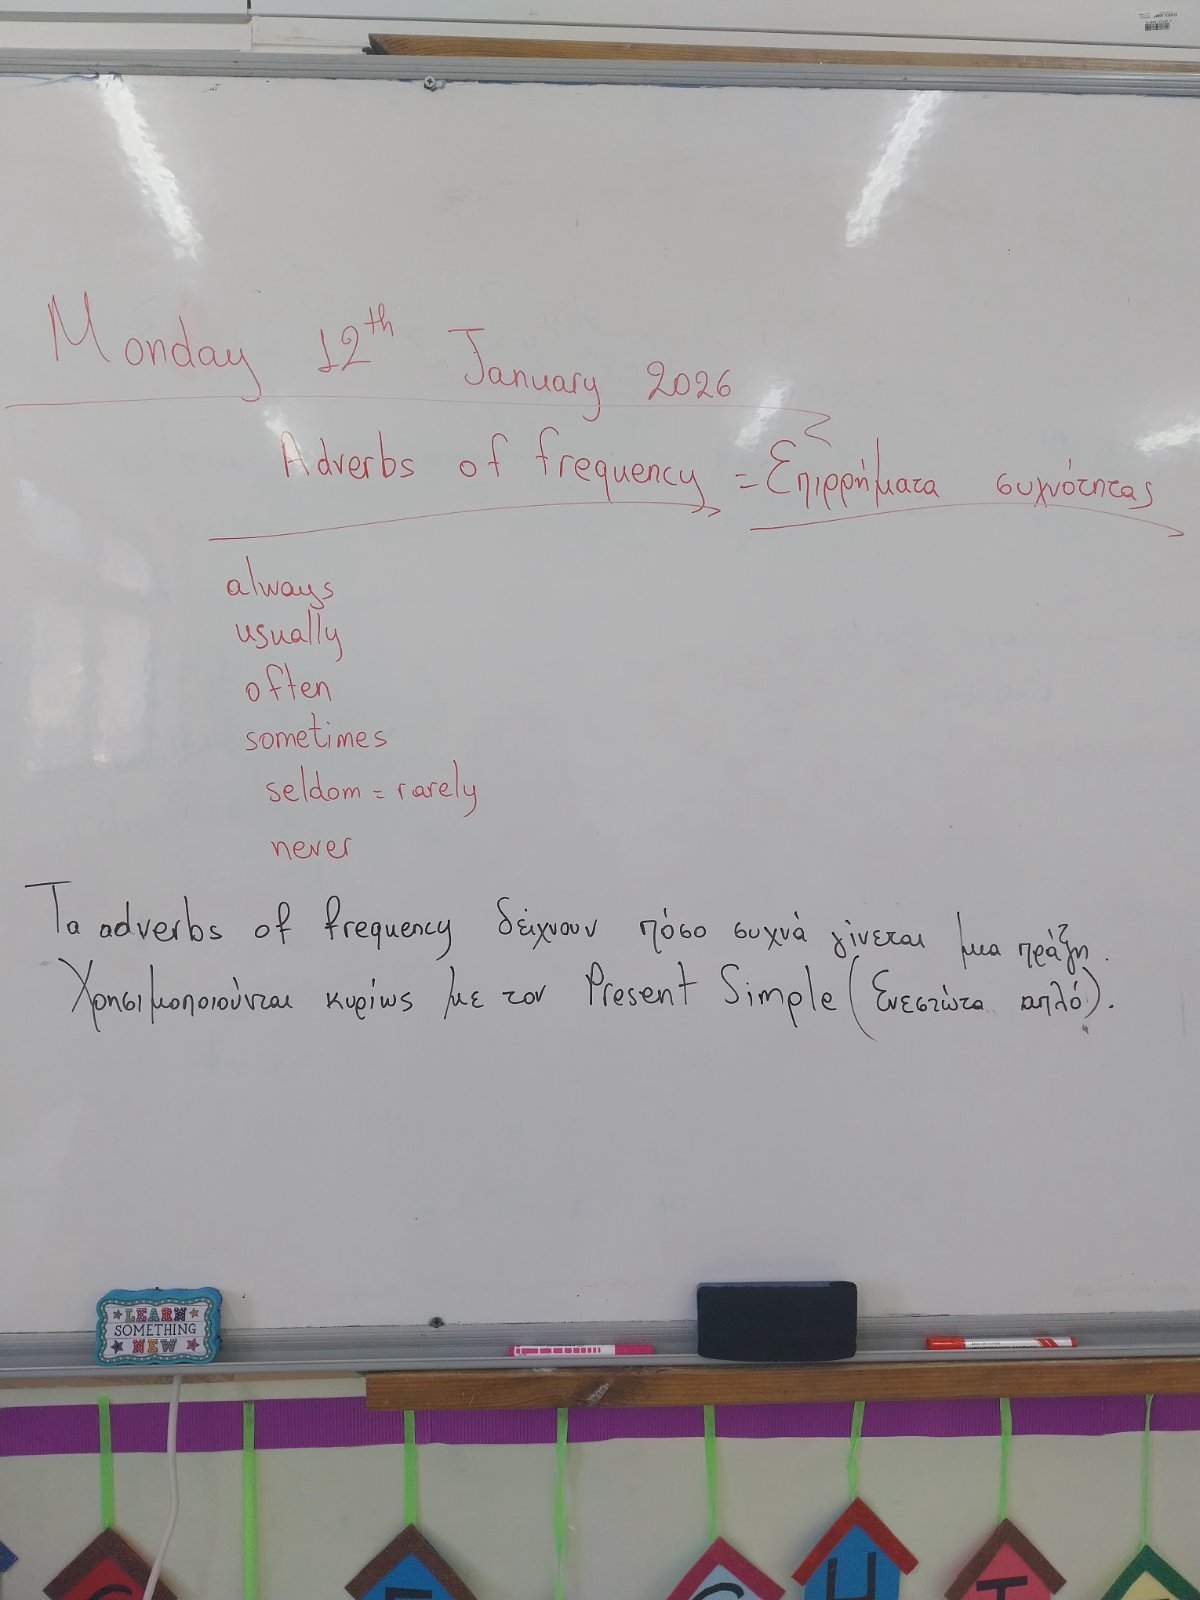 Monday 12th January 2026
Adverbs of frequency = Επιρρήματα συχνότητας
always
usually
often
sometimes
seldom = rarely
never
Τα adverbs of frequency δείχνουν πόσο συχνά γίνεται μια πράξη.
Χρησιμοποιούνται κυρίως με τον Present Simple (Ενεστώτα απλό).
LEARN
SOMETHING
NEW